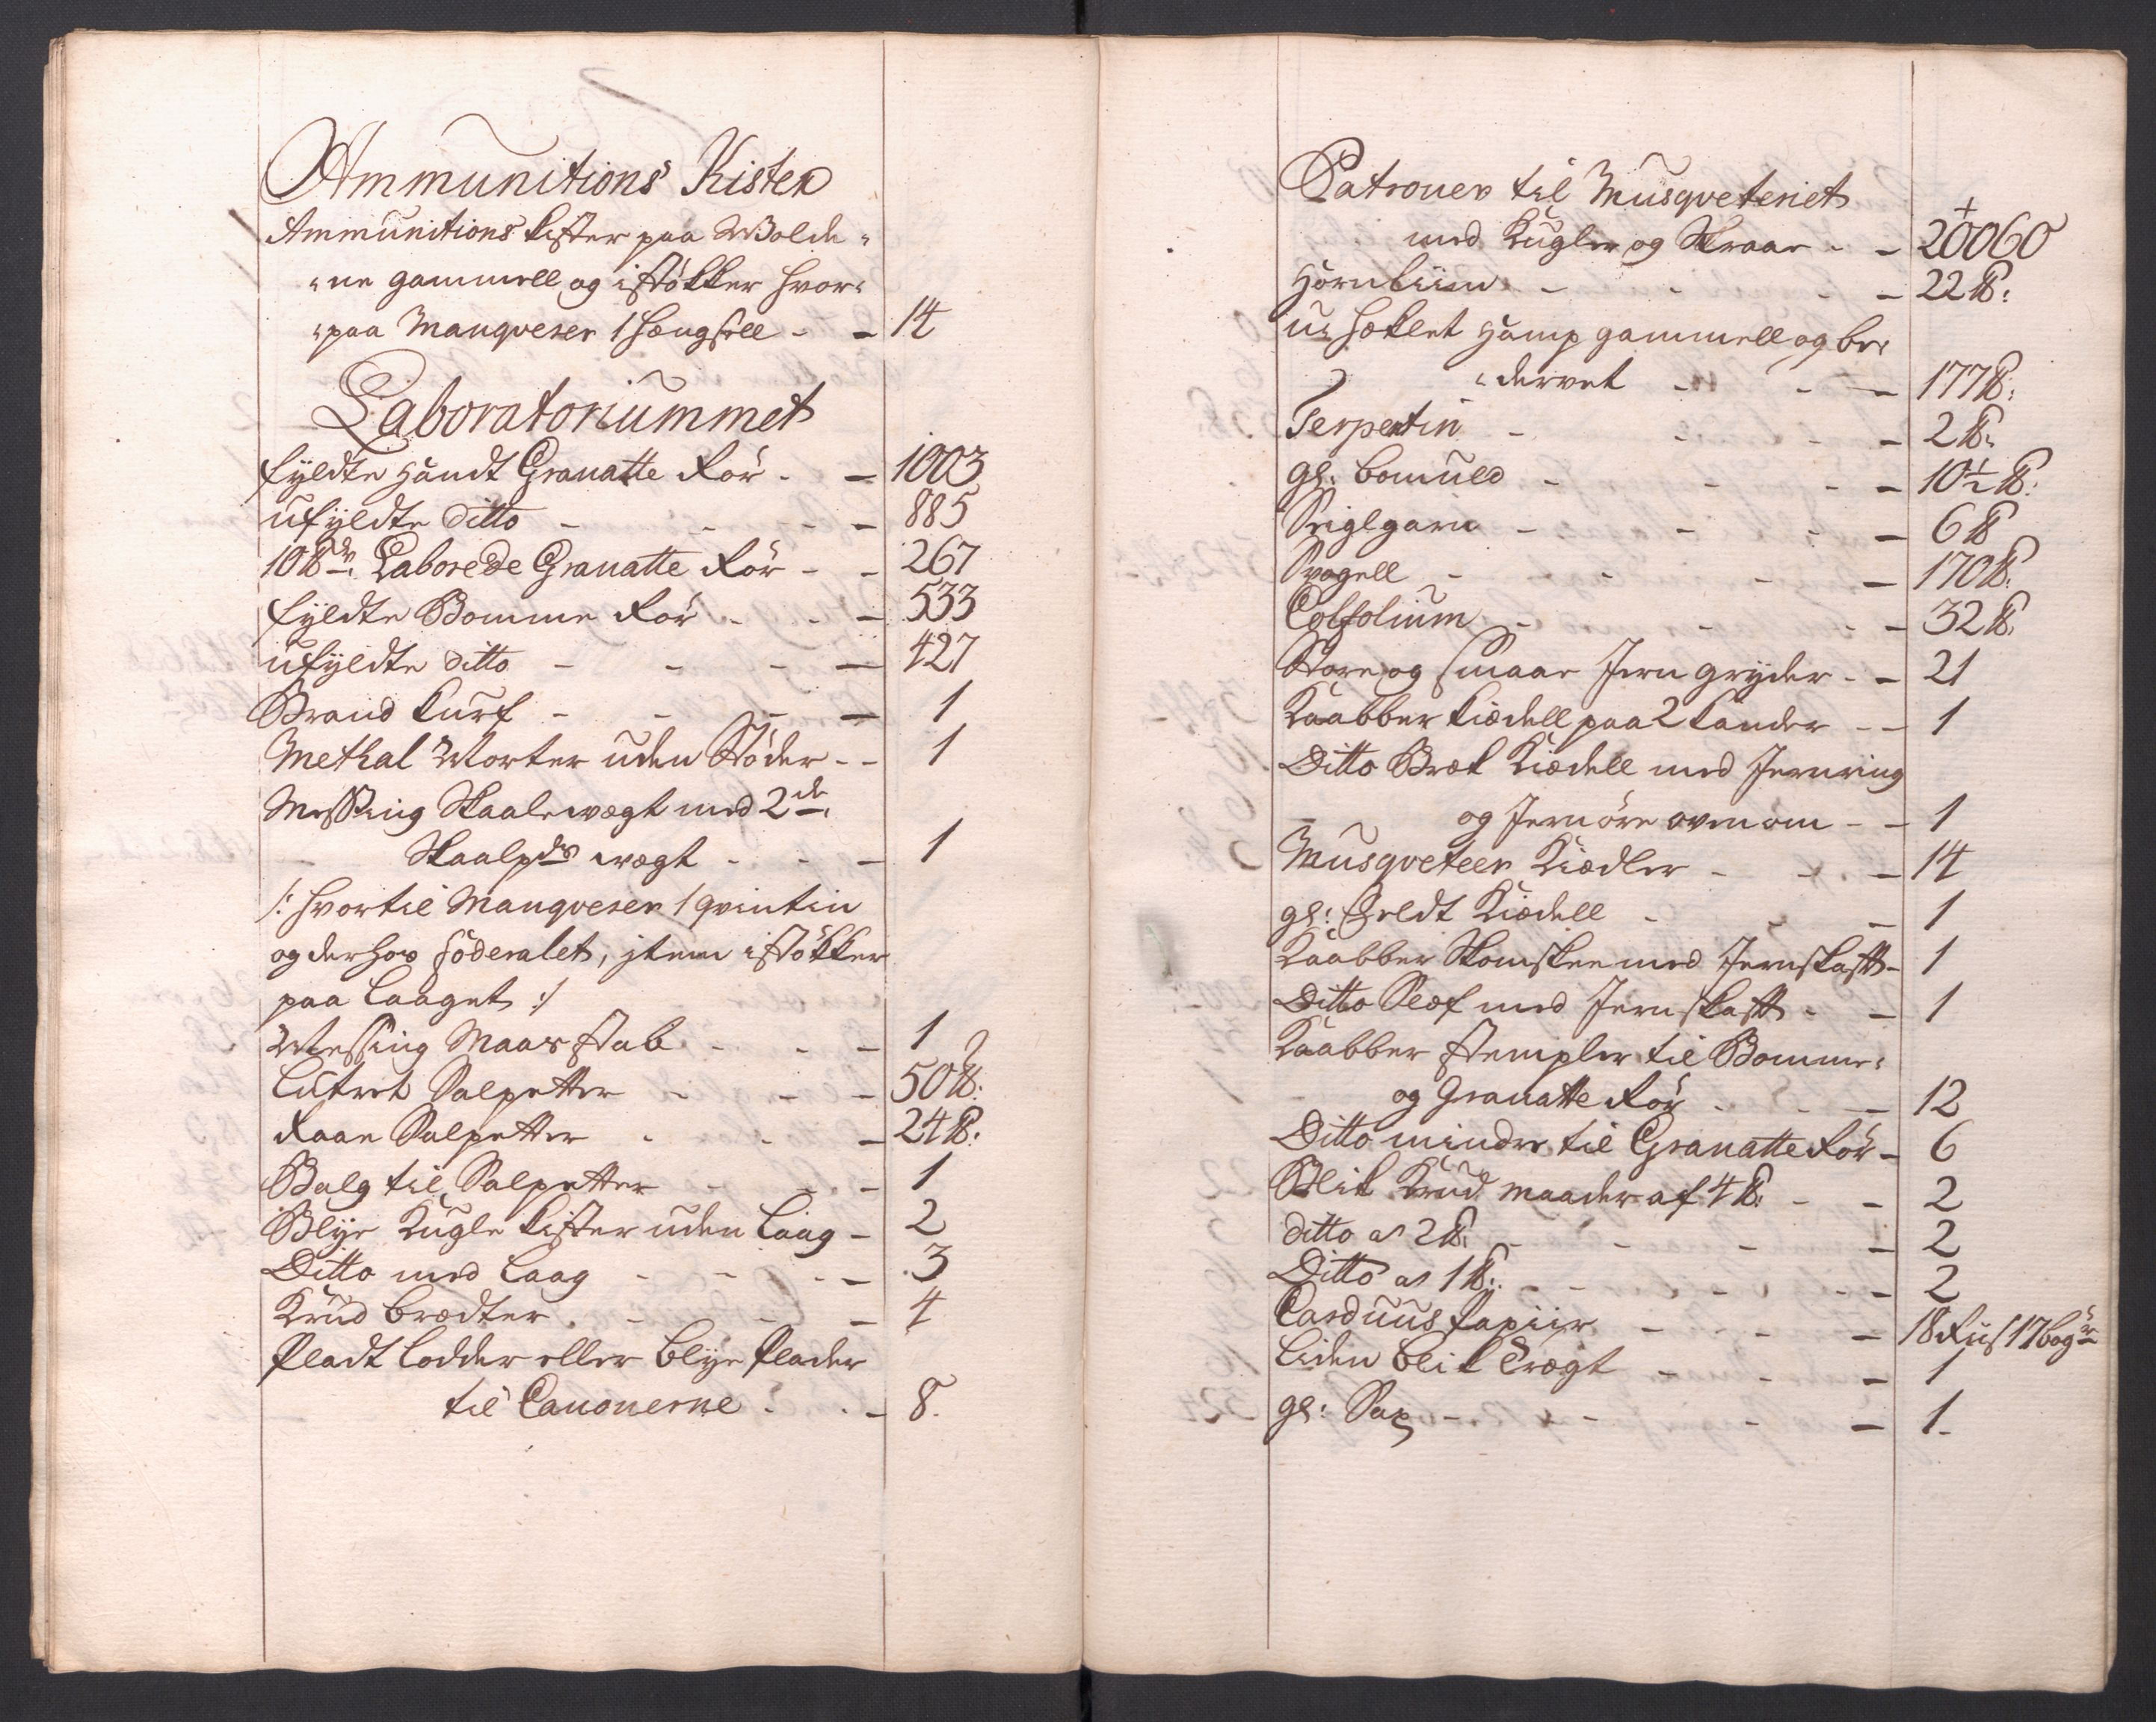 Ammunitions Kister
Ammunitions kister paa Wolde„
„ne gammell og i støkker hvor„
„paa Manqverer 1 hængsell - - 14
Laboratoriummet
fyldte Handt Granatte Rör - - 1003
ufyldte ditto - - - - 885
10 ℔dr: Laborede Granatte Rör - - 267
fyldte Bomme Rör - - - 533
ufyldte ditto - - - - 427
Brand kurf - - - - 1
Methal Morter uden Stöder - - 1
Messing Skaalewægt med 2de:
Skaalpds wægt - - - 1
/: hvortil Manqverer 1 qvintin
og derhos foderalet, jtem i støkker
paa laaget :/
Messing Maarstab - - - 1
Lutret Salpetter - - - 50 ℔:
Raae Salpetter - - - 24 ℔:
Balg til Salpetter - - - 1
Blye Kugle kister uden Laag - 2
Ditto med Laag - - - - 3
Krud brædter - - - 4
Pladt lodder eller blye plader
til Canonerne - - - 8.
Patroner til Musqveteriet
med Kugler og Skraae - - 20060
Hornliim - - - - 22 ℔:
u„ hæklet Hamp gammell og be„
„dervet - - - 177 ℔:
Terpentin - - - - 2 ℔:
gl: bomuld - - - - 10½ ℔:
Seiglgarn - - - - 6 ℔
Svogell - - - - 170 ℔:
Colfolium - - - - 32 ℔:
Store og smaae Jern gryder - - 21
Kaabber kiædell paa 2 kander - - 1
Ditto Bræk Kiædell med Jernring
og Jernöre ovenom - - 1
Musqveteer Kiædler - - - 14
gl: Feldt Kiædell - - - 1
Kaabber Skomskee med Jernskaftt - 1
Ditto Sleof med Jern skaftt - - 1
Kaabber stempler til Bomme„
og Granatte Rör - - - 12
Ditto mindre til Granatte Rör - 6
Blik Krud maader af 4 ℔: - - 2
ditto a 2 ℔: - - - - 2
Ditto a 1 ℔: - - - - 2
Carduus Papiir - - - - 18 Riis 17 bogr
Liden blik Trægt - - - 1
gl: Sax - - - - 1.